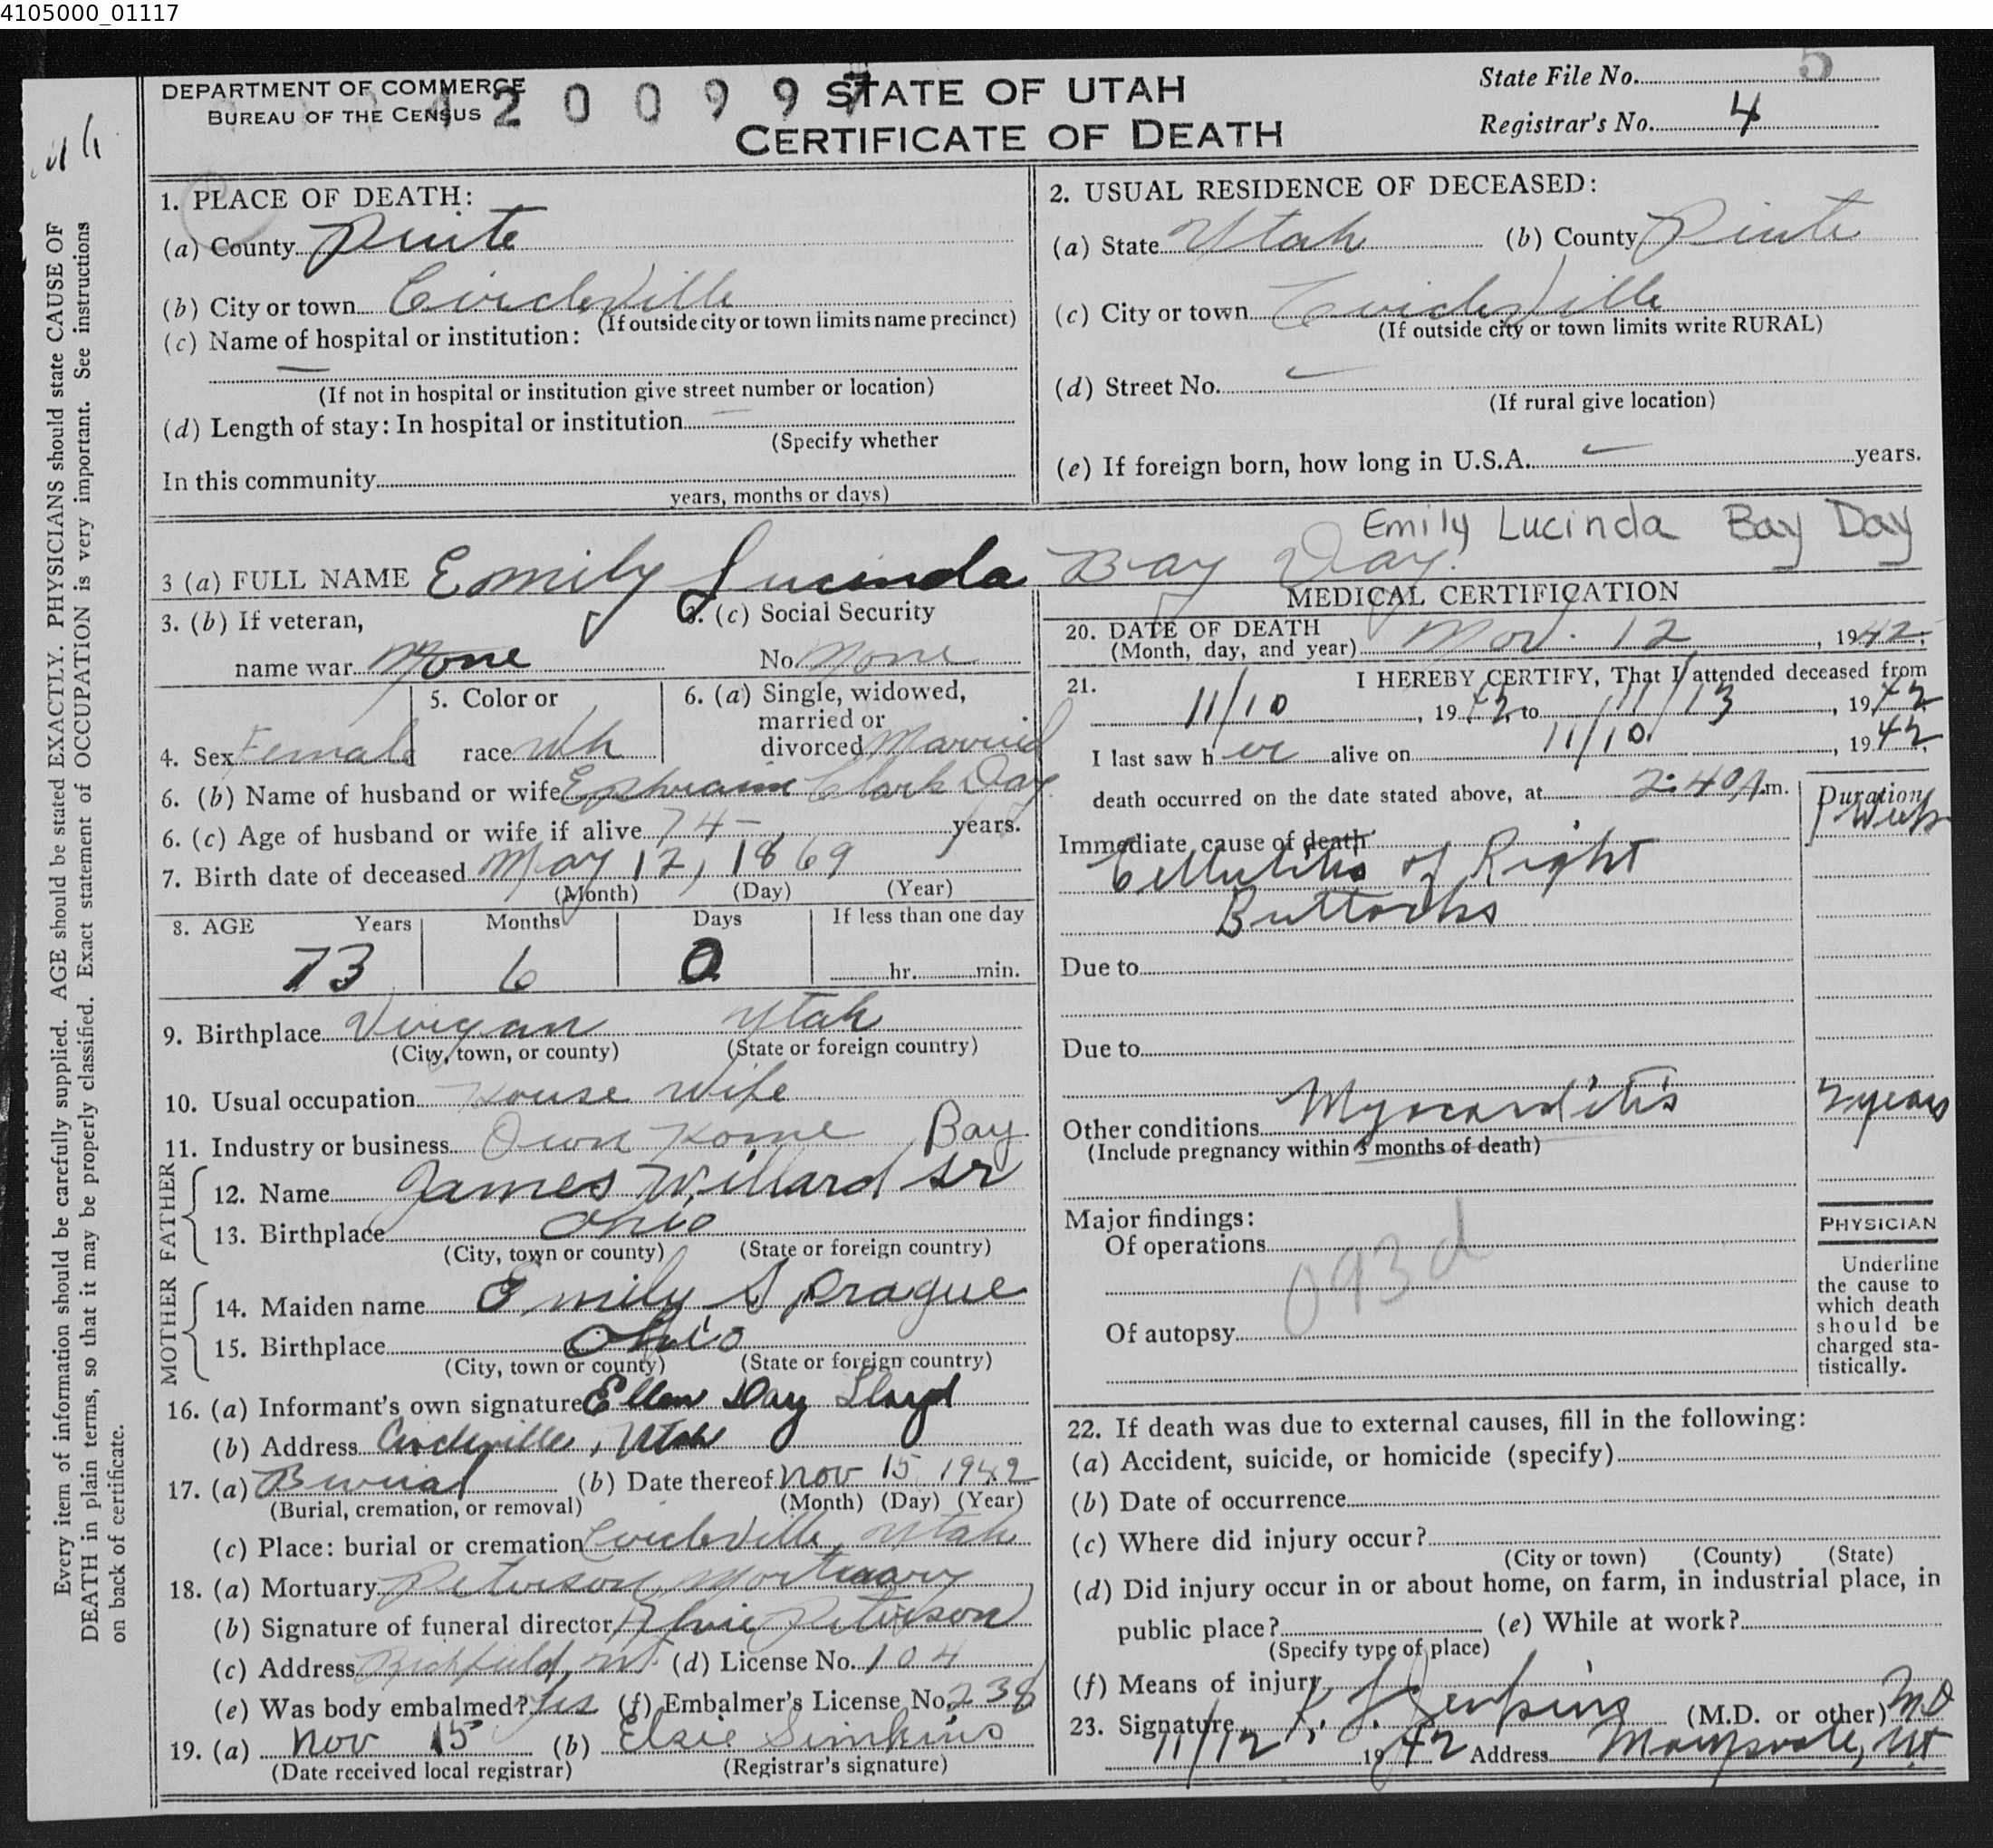 4105000_01117
DEPARTMENT OF COMMERCE
BUREAU OF THE CENSUS
4200997
STATE OF UTAH
CERTIFICATE OF DEATH
State File No. 5
Registrar's No. 4
Every item of information should be carefully supplied. AGE should be stated EXACTLY. PHYSICIANS should state CAUSE OF
DEATH in plain terms, so that it may be properly classified. Exact statement of OCCUPATION is very important. See instructions
on back of certificate.
1. PLACE OF DEATH:
(a) County Piute
(b) City or town Circleville
(If outside city or town limits name precinct)
(c) Name of hospital or institution:
—
(If not in hospital or institution give street number or location)
(d) Length of stay: In hospital or institution —
(Specify whether
In this community
years, months or days)
2. USUAL RESIDENCE OF DECEASED:
(a) State Utah (b) County Piute
(c) City or town Circleville
(If outside city or town limits write RURAL)
(d) Street No.
(If rural give location)
(e) If foreign born, how long in U.S.A. years.
Emily Lucinda Bay Day
3 (a) FULL NAME Emily Lucinda Bay Day.
3. (b) If veteran,
name war None
3. (c) Social Security
No. None
4. Sex Female
5. Color or
race Wh
6. (a) Single, widowed,
married or
divorced Married
6. (b) Name of husband or wife Ephraim Clark Day
6. (c) Age of husband or wife if alive 74 years.
7. Birth date of deceased May 12, 1869
(Month) (Day) (Year)
8. AGE Years Months Days If less than one day
73 6 0 hr. min.
9. Birthplace Virgan Utah
(City, town, or county) (State or foreign country)
10. Usual occupation House Wife
11. Industry or business Own Home
FATHER
12. Name James Willard Bay Sr
13. Birthplace Ohio
(City, town or county) (State or foreign country)
MOTHER
14. Maiden name Emily Sprague
15. Birthplace Ohio
(City, town or county) (State or foreign country)
16. (a) Informant's own signature Ellen Day Lloyd
(b) Address Circleville, Utah
17. (a) Burial (b) Date thereof Nov 15 1942
(Burial, cremation, or removal) (Month) (Day) (Year)
(c) Place: burial or cremation Circleville, Utah
18. (a) Mortuary Peterson Mortuary
(b) Signature of funeral director Peterson
(c) Address Richfield, Ut. (d) License No. 104
(e) Was body embalmed? Yes (f) Embalmer's License No. 238
19. (a) Nov 15 (b) Elsie Simkins
(Date received local registrar) (Registrar's signature)
MEDICAL CERTIFICATION
20. DATE OF DEATH
(Month, day, and year) Nov. 12, 1942.
21. I HEREBY CERTIFY, That I attended deceased from
11/10, 1942, to 11/13, 1942
I last saw her alive on 11/10, 1942,
death occurred on the date stated above, at 2:40 A.m.
Duration
Immediate cause of death
Cellulitis of Right
Buttocks
Due to
Due to
Other conditions Myocarditis 2 years
(Include pregnancy within 3 months of death)
Major findings:
Of operations
093d
Of autopsy
PHYSICIAN
Underline
the cause to
which death
should be
charged sta-
tistically.
22. If death was due to external causes, fill in the following:
(a) Accident, suicide, or homicide (specify)
(b) Date of occurrence
(c) Where did injury occur?
(City or town) (County) (State)
(d) Did injury occur in or about home, on farm, in industrial place, in
public place? (e) While at work?
(Specify type of place)
(f) Means of injury
23. Signature Jenkins (M.D. or other) MD
11/12 1942 Address Marysvale, Ut